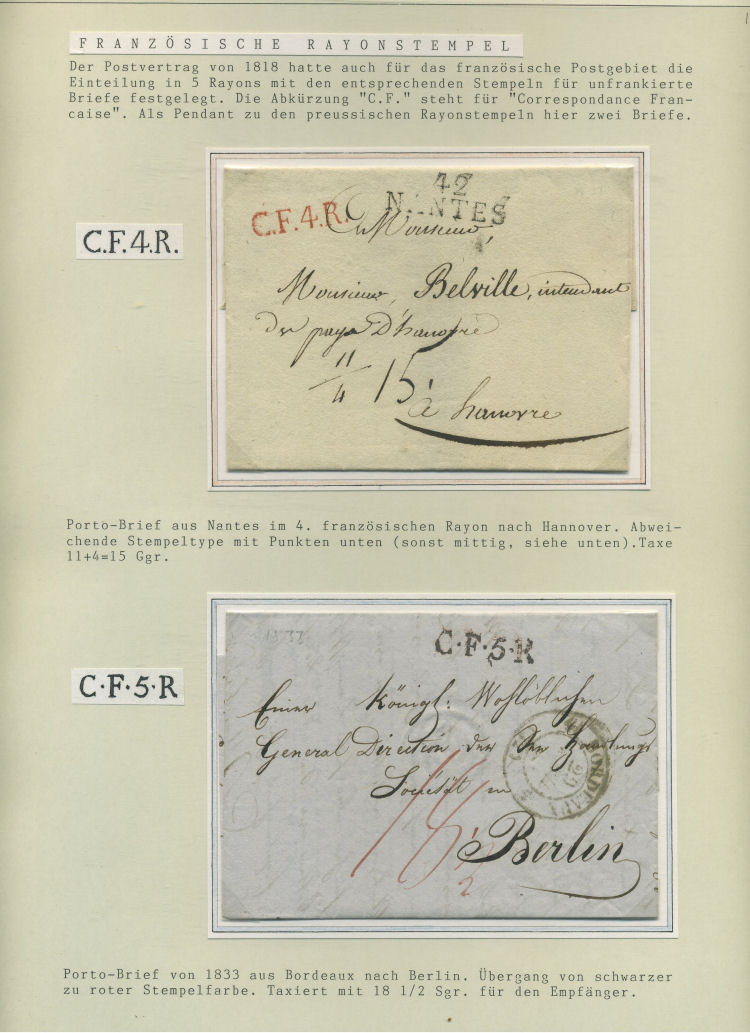 FRANZÖSISCHE RAYONSTEMPEL
Der Postvertrag von 1818 hatte auch für das französische Postgebiet die
Einteilung in 5 Rayons mit den entsprechenden Stempeln für unfrankierte
Briefe festgelegt. Die Abkürzung "C.F." steht für "Correspondance Fran-
caise". Als Pendant zu den preussischen Rayonstempeln hier zwei Briefe.
C.F.4.R.
C.F.4.R.
42
NANTES
A Monsieur,
Monsieur, Belville, intendant
du pays D'hanovre
11
4
15
à hanovre
Porto-Brief aus Nantes im 4. französischen Rayon nach Hannover. Abwei-
chende Stempeltype mit Punkten unten (sonst mittig, siehe unten).Taxe
11+4=15 Ggr.
C·F·5·R
C·F·5·R
Einer Königl: Wohllöblichen
General Direction der See Handlungs
Societät in
BORDEAUX
Berlin
2
Porto-Brief von 1833 aus Bordeaux nach Berlin. Übergang von schwarzer
zu roter Stempelfarbe. Taxiert mit 18 1/2 Sgr. für den Empfänger.